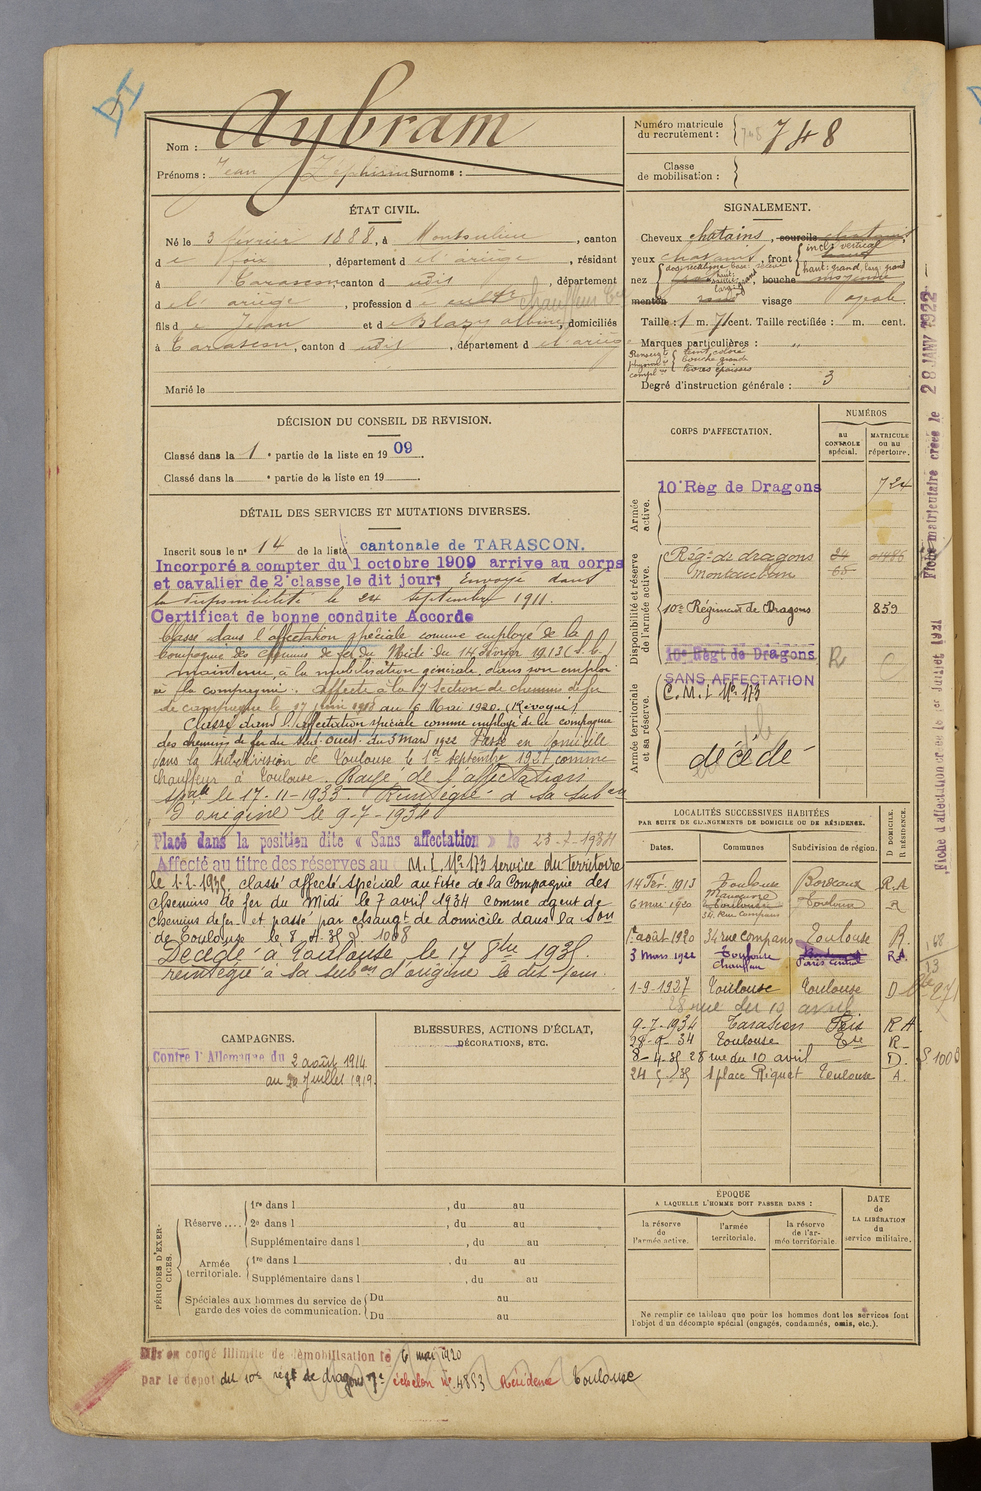 DI
Nom : Aybram
Prénoms : Jean Zéphirin Surnoms :
ÉTAT CIVIL.
Né le 3 février 1888, à Montoulieu, canton
d e Foix, département d e l'ariège, résidant
à Tarascon, canton d udit, département
d e l' ariège, profession d e chauffeur
fils d e Jean et d e Blazy albine, domiciliés
à Tarascon, canton d udit, département d e l'ariège
Marié le
DÉCISION DU CONSEIL DE REVISION.
Classé dans la 1 e partie de la liste en 19 09.
Classé dans la e partie de la liste en 19
DÉTAIL DES SERVICES ET MUTATIONS DIVERSES.
Inscrit sous le n° 14 de la liste cantonale de TARASCON.
Incorporé a compter du 1 octobre 1909 arrive au corps
et cavalier de 2e classe le dit jour; Envoyé dans
la disponibilité le 24 septembre 1911.
Certificat de bonne conduite Accordé
Classé dans l'affectation spéciale comme employé de la
Compagnie des chemins de fer du Midi du 14 février 1913
maintenu à la mobilisation générale dans son emploi
à la compagnie. Affecté à la Section de chemins de fer
de campagne le 17 juin 1918 au 6 Mai 1920. (Révoqué)
Classé dans l'affectation spéciale comme employé de la compagnie
des chemins de fer du Sud-Ouest du 3 Mars 1922 Passé en domicile
dans la subdivision de Toulouse le 1er septembre 1927 comme
chauffeur à Toulouse. Rayé de l'affectation
spale le 17-11-1933. Réintégré à sa subon
d'origine le 9-7-1934
Placé dans la position dite « Sans affectation » le 23-7-1934
Affecté au titre des réserves au M. I. N° 173 service du territoire
le 1-1-1935, classé affecté spécial au titre de la Compagnie des
chemins de fer du Midi le 7 avril 1934 comme agent de
chemins de fer et passé par changt de domicile dans la Son
de Toulouse le 8-4-35 S. 1008
Décédé à Toulouse le 17 8bre 1935
réintégré à sa subon d'origine le dit jour.
CAMPAGNES.
Contre l'Allemagne du 2 août 1914
au 20 Juillet 1919.
BLESSURES, ACTIONS D'ÉCLAT,
DÉCORATIONS, ETC.
PÉRIODES D'EXERCICES.
Réserve ....
1re dans l , du au
2e dans l , du au
Supplémentaire dans l , du au
Armée territoriale.
1re dans l , du au
Supplémentaire dans l , du au
Spéciales aux hommes du service de garde des voies de communication.
Du au
Du au
Mis en congé illimité de démobilisation le 6 mai 1920
par le dépôt du 10e régt de dragons 7e échelon N° 4853 Résidence Toulouse
Numéro matricule du recrutement : 748 748
Classe de mobilisation :
SIGNALEMENT.
Cheveux chatains, sourcils chatains
yeux chatains, front incl: vertical haut: grand, larg: grand
nez bouche moyenne
menton rond visage ovale
Taille : 1 m. 71 cent. Taille rectifiée : m. cent.
Marques particulières : "
Renseigts physioniq compl res teint coloré bouche grande lèvres épaisses
Degré d'instruction générale : 3
CORPS D'AFFECTATION.
NUMÉROS
au CONTROLE spécial.
MATRICULE ou au répertoire.
Armée active.
10e Rég de Dragons 724
Disponibilité et réserve de l'armée active.
Régt de dragons Montauban
10e Régiment de Dragons 859
16e Régt de Dragons R 0
Armée territoriale et sa réserve.
SANS AFFECTATION
C. M. I. N° 173
décédé
LOCALITÉS SUCCESSIVES HABITÉES
PAR SUITE DE CHANGEMENTS DE DOMICILE OU DE RÉSIDENCE.
Dates. Communes Subdivision de région. D DOMICILE. R RÉSIDENCE.
14 Fév. 1913 Toulouse Bordeaux R.A
6 mai 1920 Toulouse 34 Rue Compans Toulouse R
1er août 1920 34 rue Compans Toulouse R.
3 Mars 1922 Toulouse chauffeur Bordeaux Paris central R.A.
1-9-1927 Toulouse Toulouse D
28 rue du 10 avril
9-7-1934 Tarascon Foix R A
28-9-34 Toulouse Tlse R
8-4-35 28 rue du 10 avril D. S. 1008
24 5 35 1 place Riquet Toulouse A.
ÉPOQUE
A LAQUELLE L'HOMME DOIT PASSER DANS :
la réserve de l'armée active.
l'armée territoriale.
la réserve de l'armée territoriale.
DATE DE LA LIBÉRATION du service militaire.
Ne remplir ce tableau que pour les hommes dont les services font
l'objet d'un décompte spécial (engagés, condamnés, omis, etc.).
Fiche matriculaire créée le 28 JANV 1922
Fiche d'affectation créée le 1er Juillet 1921